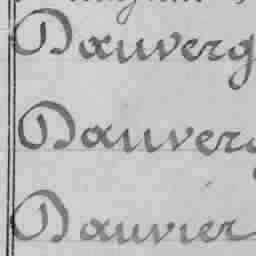 Dauverg
Dauverg
Dauvier